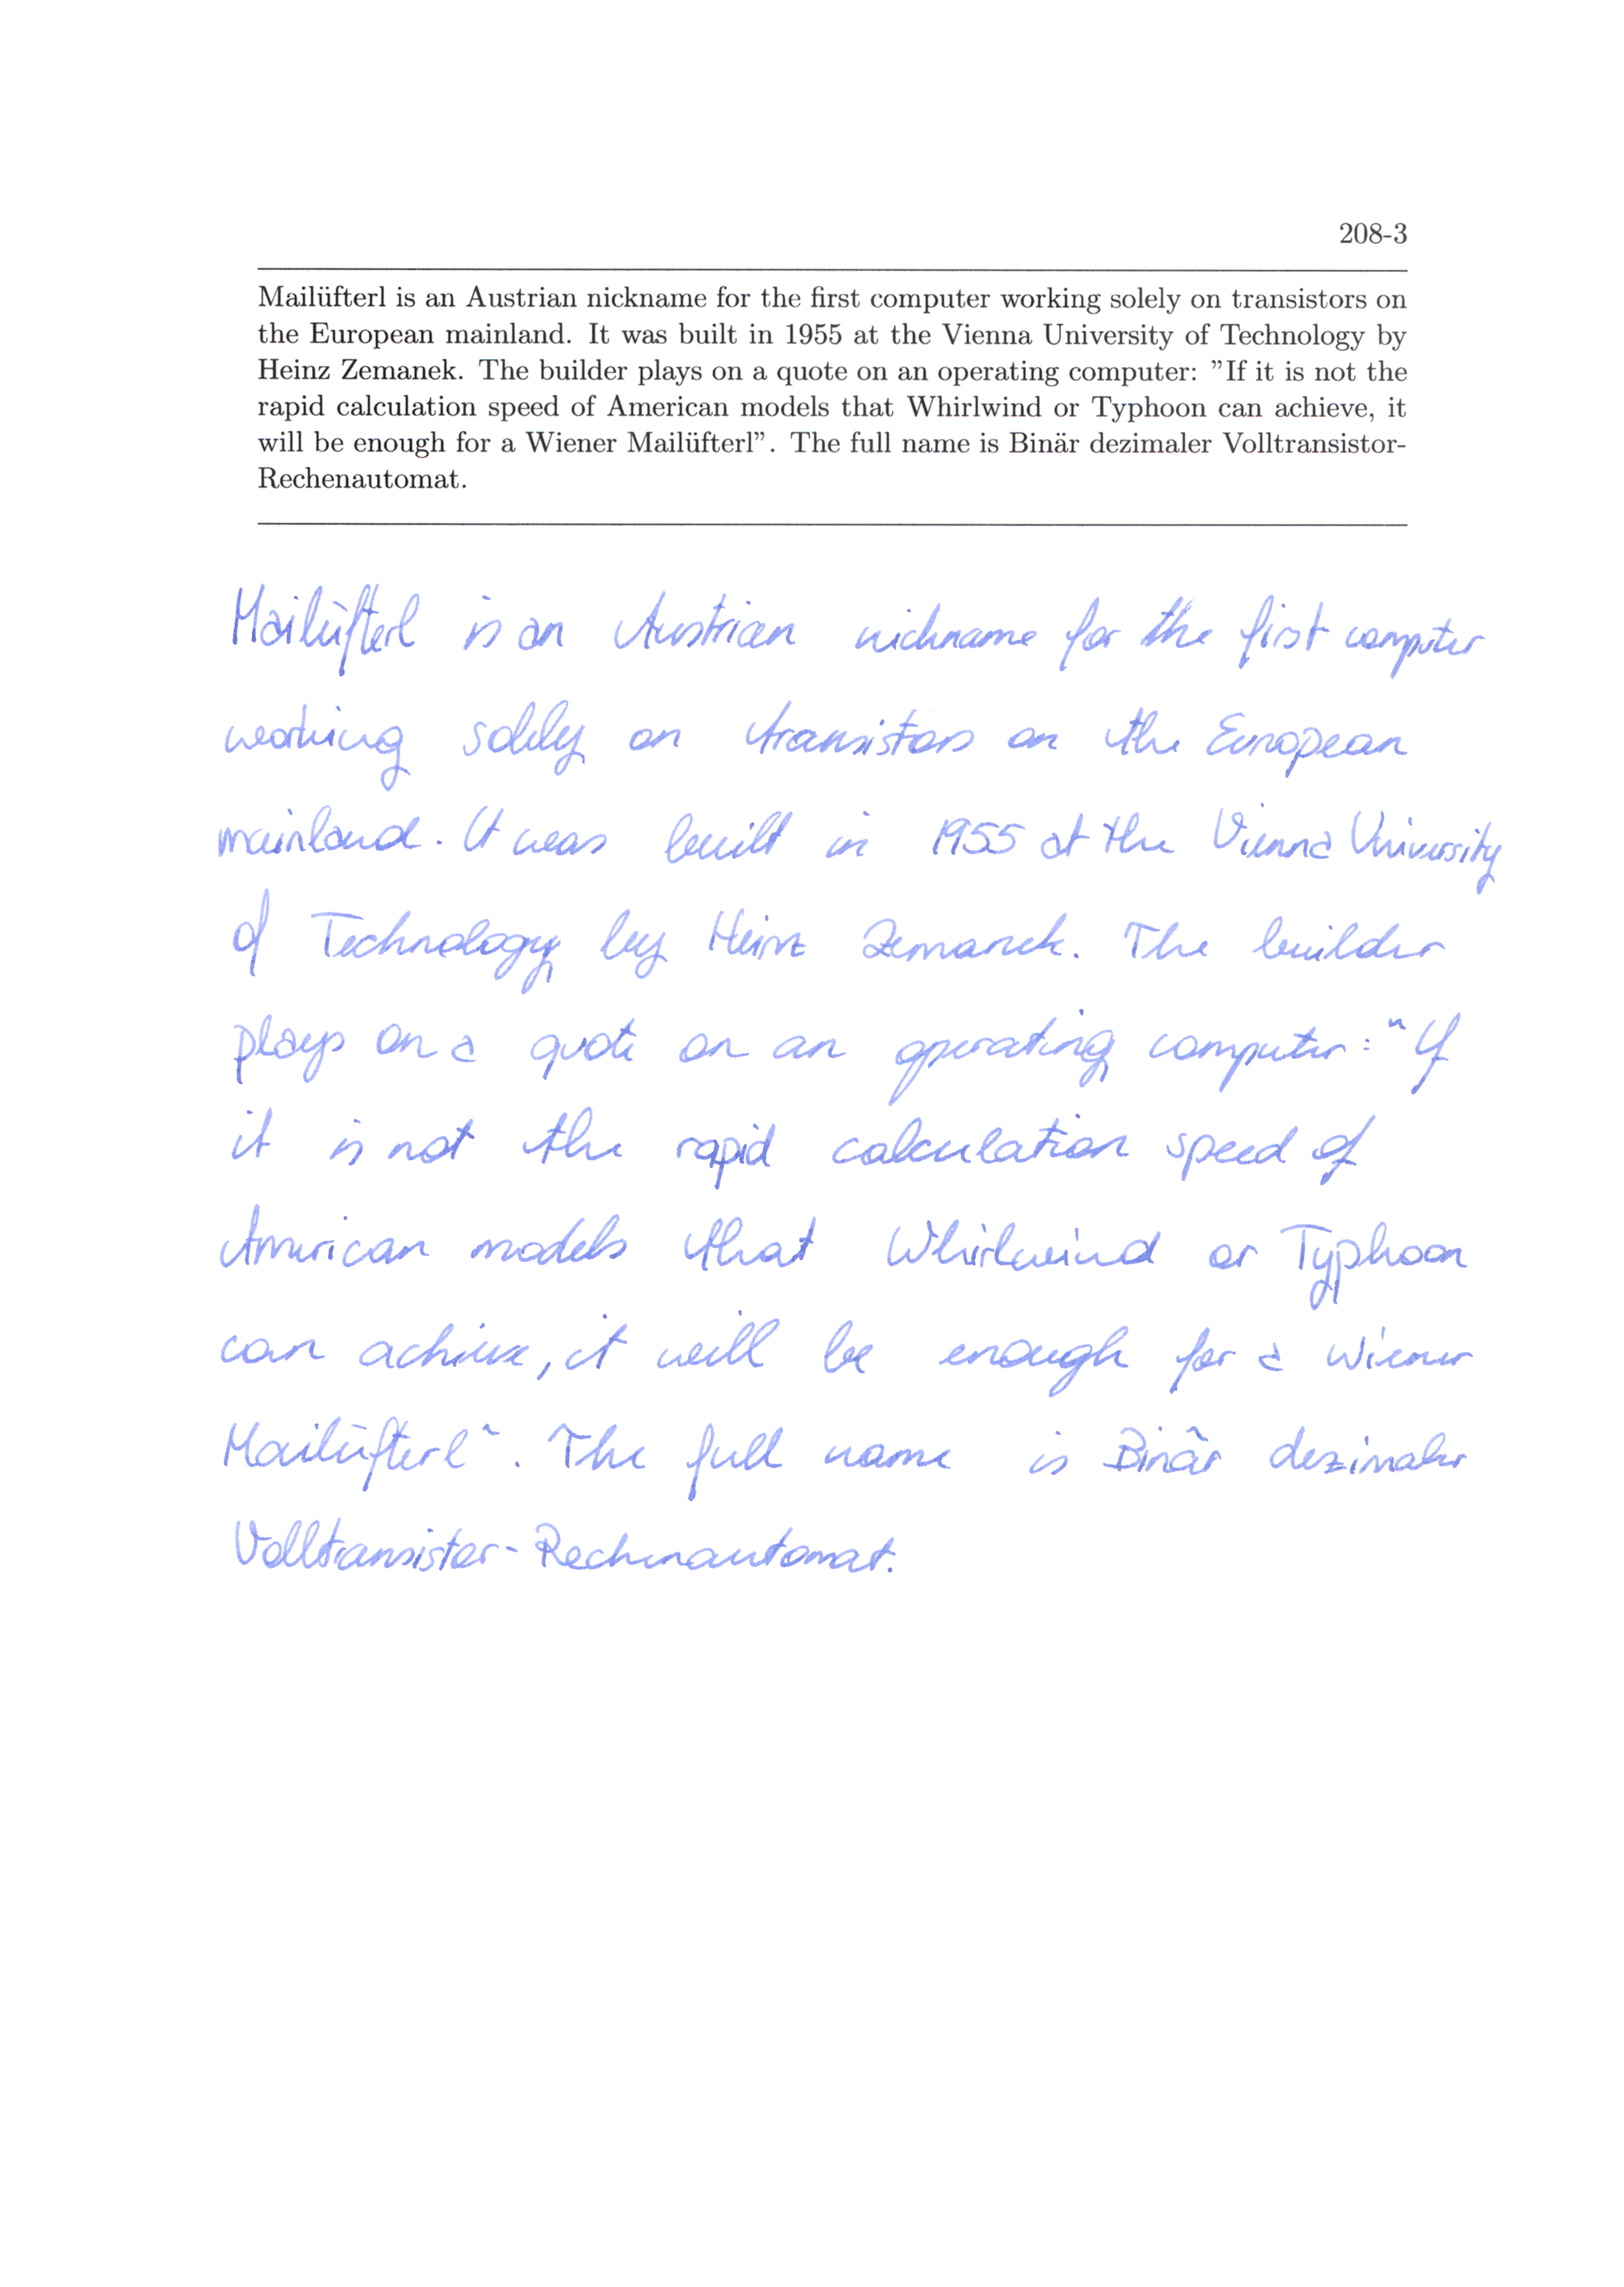 208-3
Mailüfterl is an Austrian nickname for the first computer working solely on transistors on
the European mainland. It was built in 1955 at the Vienna University of Technology by
Heinz Zemanek. The builder plays on a quote on an operating computer: ”If it is not the
rapid calculation speed of American models that Whirlwind or Typhoon can achieve, it
will be enough for a Wiener Mailüfterl”. The full name is Binär dezimaler Volltransistor-
Rechenautomat.
Mailüfterl is an Austrian nichname for the first computer
working solely on transistors on the European
mainland. It was built in 1955 at the Vienna University
of Technology by Heinz Zemanek. The builder
plays on a quote on an operating computer: "If
it is not the rapid calculation speed of
American models that Whirlwind or Typhoon
can achieve, it will be enough for a Wiener
Mailüfterl". The full name is Binär dezimaler
Volltransistor-Rechenautomat.